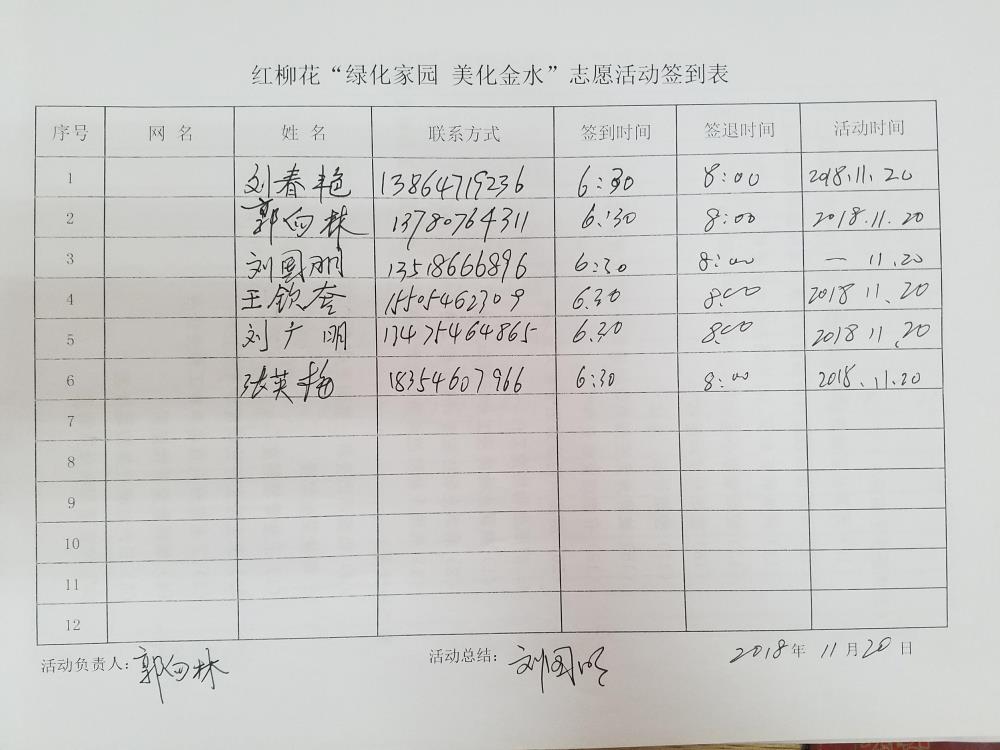 红柳花“绿化家园 美化金水”志愿活动签到表
序号 网 名 姓 名 联系方式 签到时间 签退时间 活动时间
1 刘春艳 13864719236 6:30 8:00 2018.11.20
2 郭向林 13780764311 6:30 8:00 2018.11.20
3 刘国明 13518666896 6:30 8:00 一 11.20
4 王钦奎 15505462309 6.30 8:00 2018 11.20
5 刘广明 13475464865 6.30 8:00 2018 11.20
6 张英梅 18354607966 6:30 8:00 2018.11.20
7
8
9
10
11
12
活动负责人:郭向林 活动总结:刘国明 2018年 11月20日